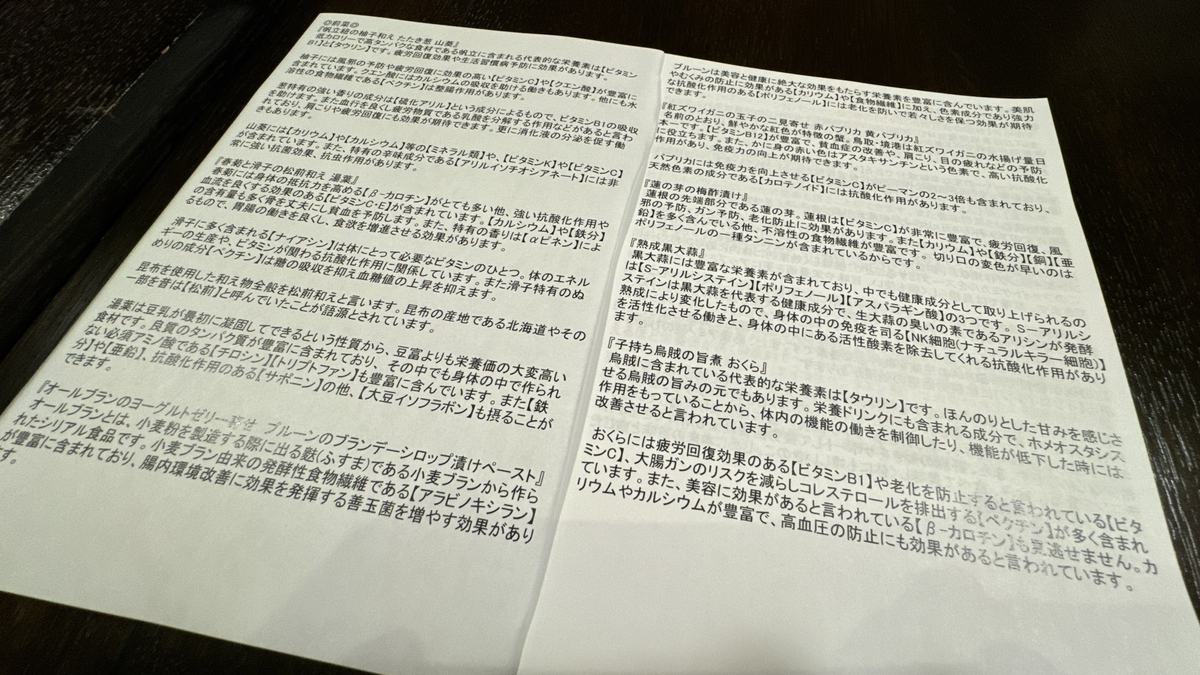 ◎前菜◎
『帆立紐の柚子和え たたき葱 山葵』
低カロリーで高タンパクな食材である帆立に含まれる代表的な栄養素は【ビタミン
B1】と【タウリン】です。疲労回復効果や生活習慣病予防に効果があります。
柚子には風邪の予防や疲労回復に効果の高い【ビタミンC】や【クエン酸】が豊富に
含まれています。クエン酸にはカルシウムの吸収を助ける働きもあります。他にも水
溶性の食物繊維である【ペクチン】は整腸作用があります。
葱特有の強い香りの成分は【硫化アリル】という成分によるもので、ビタミンB1の吸収
を助けます。また血行を良くし疲労物質である乳酸を分解する作用などがあると言わ
れており、肩こりや疲労回復にも効果が期待できます。更に消化液の分泌を促す働
きもあります。
山葵には【カリウム】や【カルシウム】等の【ミネラル類】や、【ビタミンK】や【ビタミンC】
が含まれています。また、特有の辛味成分である【アリルイソチオシアネート】には非
常に強い抗菌効果、抗虫作用があります。
『春菊と滑子の松前和え 湯葉』
春菊には身体の抵抗力を高める【β-カロチン】がとても多い他、強い抗酸化作用や
血流を良くする効果のある【ビタミンC・E】が含まれています。【カルシウム】や【鉄分】
の含有量も多く骨を丈夫にし貧血を予防します。また、特有の香りは【αピネン】によ
るもので、胃腸の働きを良くし、食欲を増進させる効果があります。
滑子に多く含まれる【ナイアシン】は体にとって必要なビタミンのひとつ。体のエネル
ギーの生産や、ビタミンが関わる抗酸化作用に関係しています。また滑子特有のぬ
めりの成分【ペクチン】は糖の吸収を抑え血糖値の上昇を抑えます。
昆布を使用した和え物全般を松前和えと言います。昆布の産地である北海道やその
一部を昔は【松前】と呼んでいたことが語源とされています。
湯葉は豆乳が最初に凝固してできるという性質から、豆富よりも栄養価の大変高い
食材です。良質のタンパク質が豊富に含まれており、その中でも身体の中で作られ
ない必須アミノ酸である【チロシン】【トリプトファン】も豊富に含んでいます。また【鉄
分】や【亜鉛】、抗酸化作用のある【サポニン】の他、【大豆イソフラボン】も摂ることが
できます。
『オールブランのヨーグルトゼリー寄せ プルーンのブランデーシロップ漬けペースト』
オールブランとは、小麦粉を製造する際に出る麩(ふすま)である小麦ブランから作ら
れたシリアル食品です。小麦ブラン由来の発酵性食物繊維である【アラビノキシラン】
が豊富に含まれており、腸内環境改善に効果を発揮する善玉菌を増やす効果があり
す。
プルーンは美容と健康に絶大な効果をもたらす栄養素を豊富に含んでいます。美肌
やむくみの防止に効果がある【カリウム】や【食物繊維】に加え、色素成分であり強力
な抗酸化作用のある【ポリフェノール】には老化を防いで若々しさを保つ効果が期待
できます。
『紅ズワイガニの玉子の二見寄せ 赤パプリカ 黄パプリカ』
名前のとおり、鮮やかな紅色が特徴の蟹。鳥取・境港は紅ズワイガニの水揚げ量日
本一です。【ビタミンB12】が豊富で、貧血症の改善や、肩こり、目の疲れなどの予防
に役立ちます。また、かに身の赤い色はアスタキサンチンという色素で、高い抗酸化
作用があり、免疫力の向上が期待できます。
パプリカには免疫力を向上させる【ビタミンC】がピーマンの2~3倍も含まれており、
天然色素の成分である【カロテノイド】には抗酸化作用があります。
『蓮の芽の梅酢漬け』
蓮根の先端部分である蓮の芽。蓮根は【ビタミンC】が非常に豊富で、疲労回復、風
邪の予防、ガン予防、老化防止に効果があります。また【カリウム】や【鉄分】【銅】【亜
鉛】を多く含んでいる他、不溶性の食物繊維が豊富です。切り口の変色が早いのは
ポリフェノールの一種タンニンが含まれているからです。
『熟成黒大蒜』
黒大蒜には豊富な栄養素が含まれており、中でも健康成分として取り上げられるの
は【S-アリルシステイン】【ポリフェノール】【アスパラギン酸】の3つです。S-アリルシ
ステインは黒大蒜を代表する健康成分で、生大蒜の臭いの素であるアリシンが発酵
熟成により変化したもので、身体の中の免疫を司る【NK細胞(ナチュラルキラー細胞)】
を活性化させる働きと、身体の中にある活性酸素を除去してくれる抗酸化作用があり
ます。
『子持ち烏賊の旨煮 おくら』
烏賊に含まれている代表的な栄養素は【タウリン】です。ほんのりとした甘みを感じさ
せる烏賊の旨みの元でもあります。栄養ドリンクにも含まれる成分で、ホメオスタシス
作用をもっていることから、体内の機能の働きを制御したり、機能が低下した時には
改善させると言われています。
おくらには疲労回復効果のある【ビタミンB1】や老化を防止すると言われている【ビタ
ミンC】、大腸ガンのリスクを減らしコレステロールを排出する【ペクチン】が多く含まれ
ています。また、美容に効果があると言われている【β-カロチン】も見逃せません。カ
リウムやカルシウムが豊富で、高血圧の防止にも効果があると言われています。